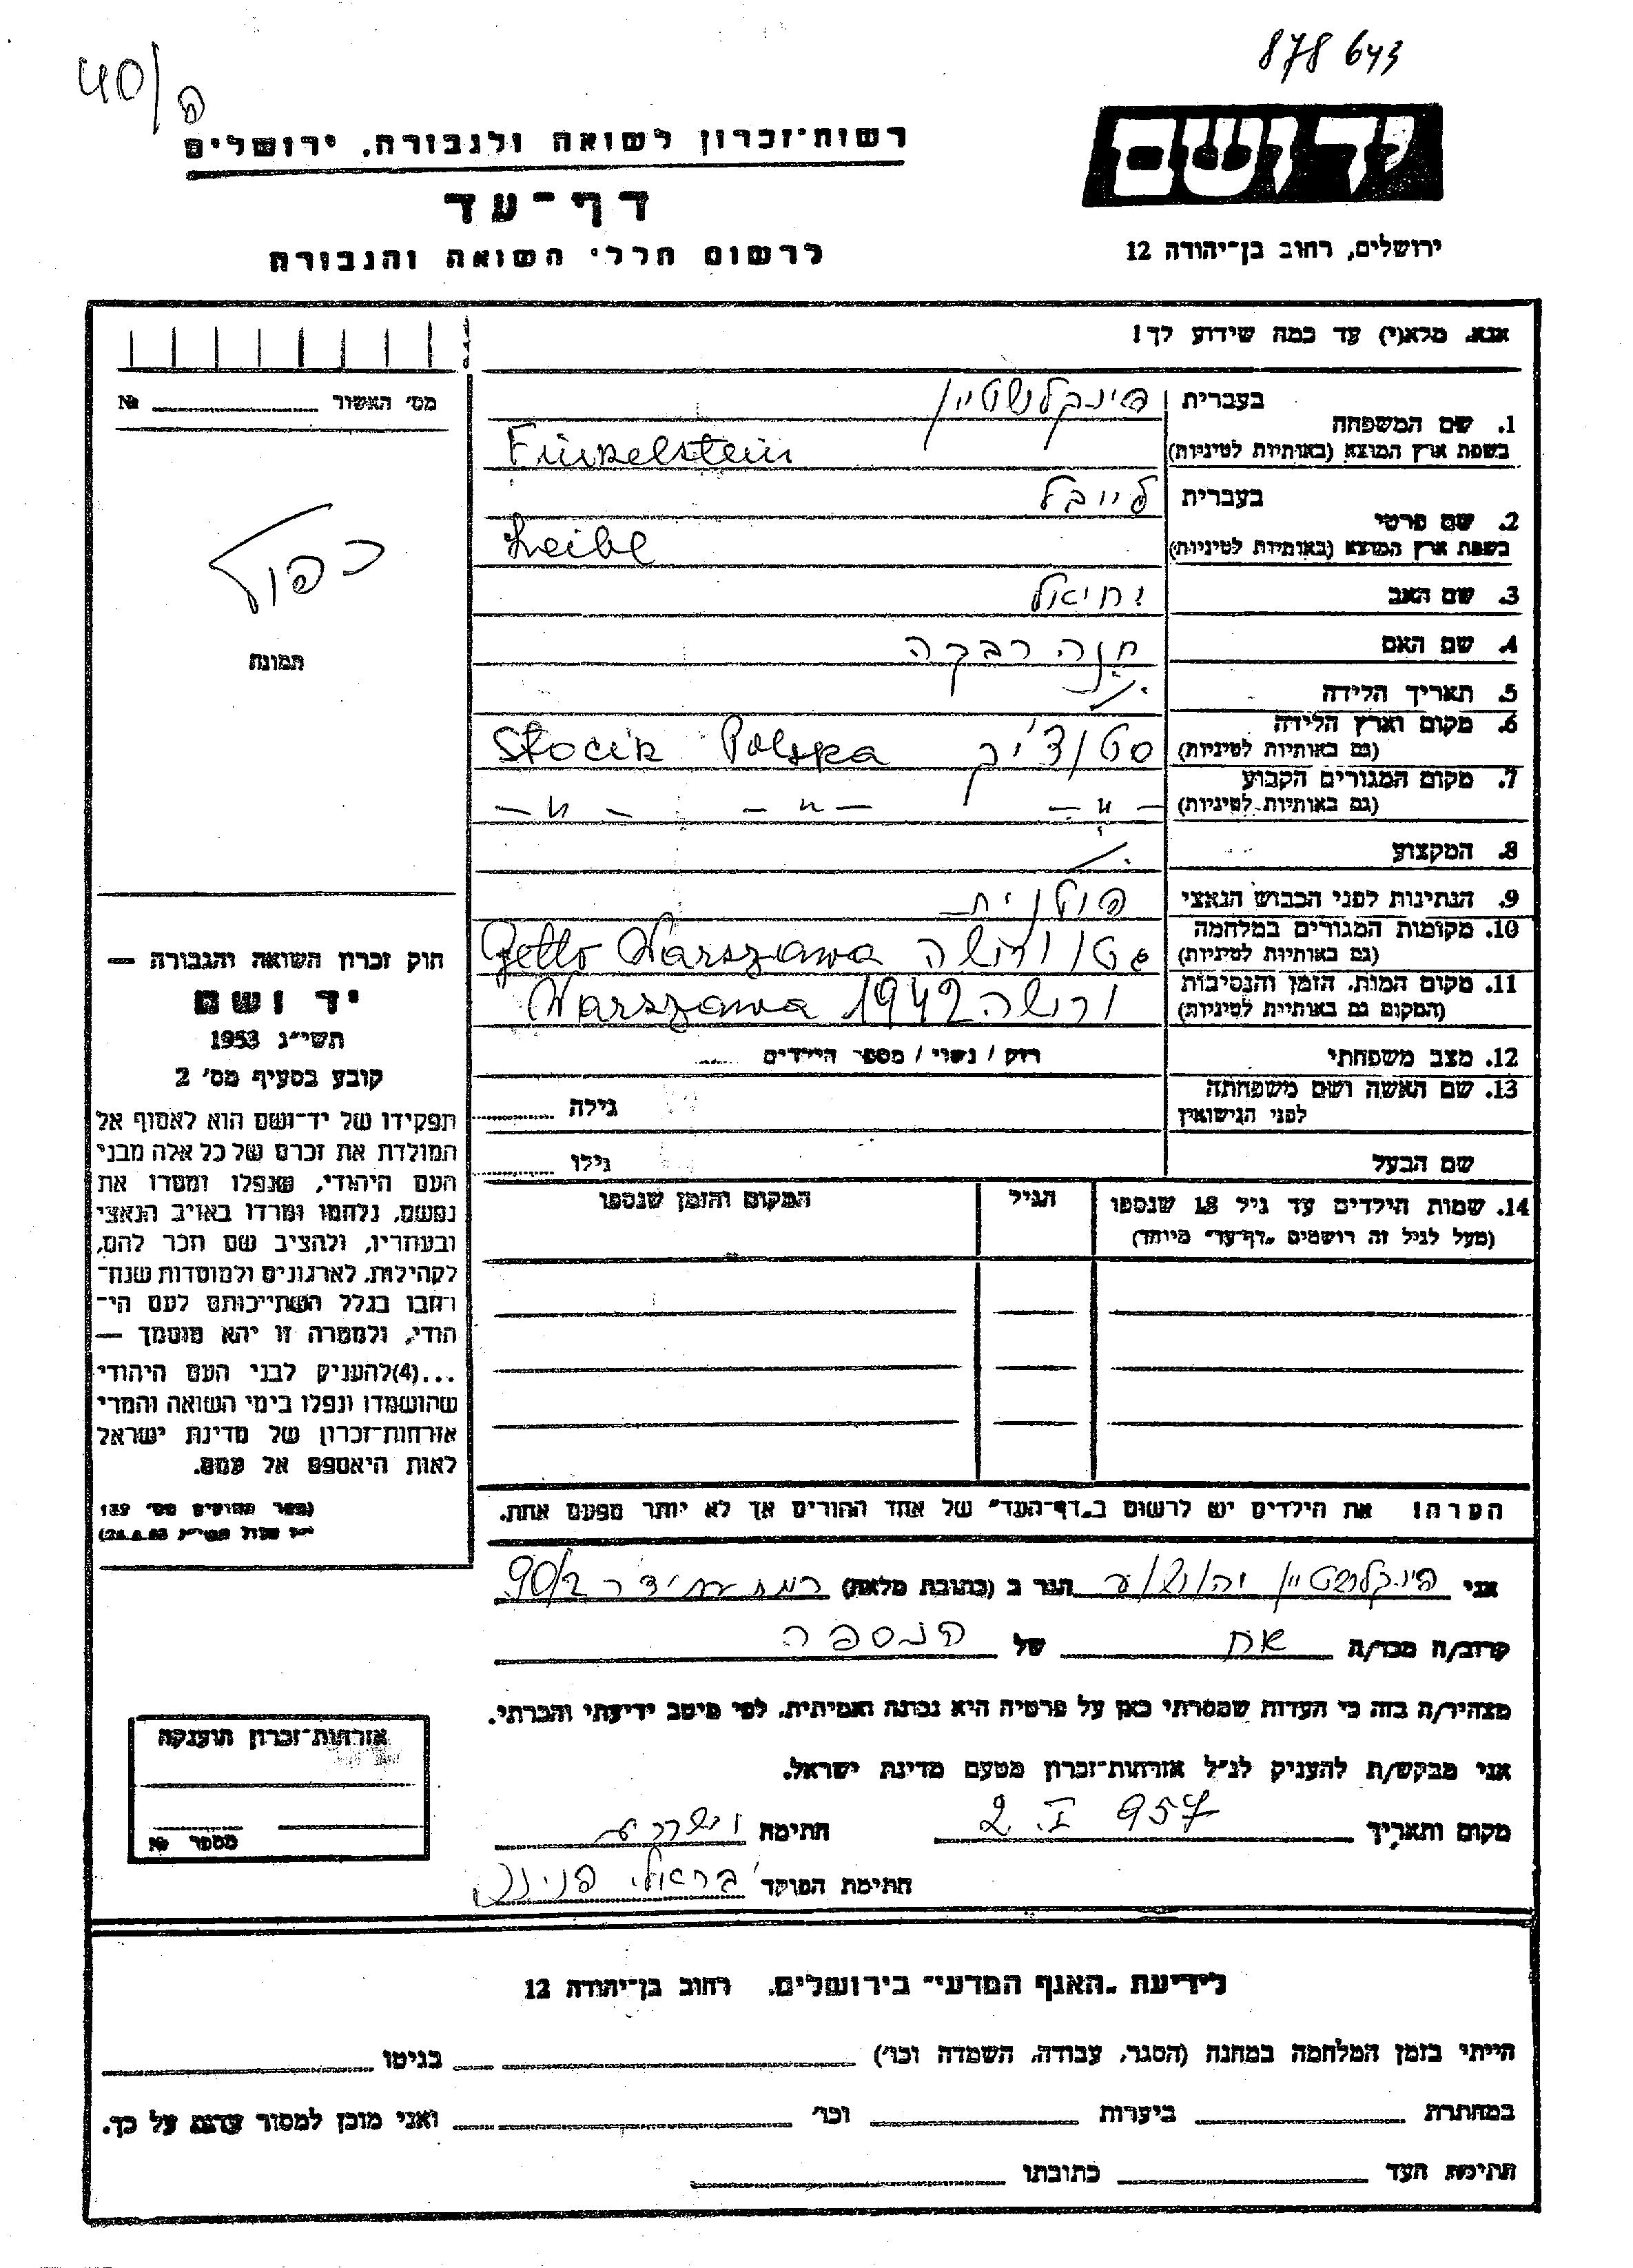 878643
40/פ
יד ושם
רשות־זכרון לשואה ולגבורה, ירושלים
דף־עד
לרשום חללי השואה והגבורה
ירושלים, רחוב בן־יהודה 12
אנא, מלא(י) עד כמה שידוע לך!
מס׳ האשור № 
כפול
תמונת
1. שם המשפחה
בעברית פינקלשטיין
בשפת ארץ המוצא (באותיות לטיניות) Finkelstein
2. שם פרטי
בעברית לייבל
בשפת ארץ המוצא (באותיות לטיניות) Leibl
3. שם האב יחיאל
4. שם האם חנה רבקה
5. תאריך הלידה
6. מקום וארץ הלידה סטוצ'יק Stocik Polska
(גם באותיות לטיניות)
7. מקום המגורים הקבוע
(גם באותיות לטיניות) — " — — " — — " —
8. המקצוע
9. הנתינות לפני הכבוש הנאצי פולנית
10. מקומות המגורים במלחמה גטו ורשה Getto Warszawa
(גם באותיות לטיניות)
11. מקום המות, הזמן והנסיבות ורשה 1942 Warszawa
(המקום גם באותיות לטיניות)
12. מצב משפחתי רווק / נשוי / מספר הילדים
13. שם האשה ושם משפחתה
לפני הנישואין גילה
שם הבעל גילו
14. שמות הילדים עד גיל 18 שנספו הגיל המקום והזמן שנספו
(מעל לגיל זה רושמים „דף־עד" מיוחד)
הערה! את הילדים יש לרשום ב„דף־העד" של אחד ההורים אך לא יותר מפעם אחת.
חוק זכרון השואה והגבורה —
יד ושם
תשי״ג 1953
קובע בסעיף מס׳ 2
תפקידו של יד־ושם הוא לאסוף אל
המולדת את זכרם של כל אלה מבני
העם היהודי, שנפלו ומסרו את
נפשם, נלחמו ומרדו באויב הנאצי
ובעוזריו, ולהציב שם וזכר להם,
לקהילות, לארגונים ולמוסדות שנח־
רחבו בגלל השתייכותם לעם הי־
הודי, ולמטרה זו יהא מוסמך —
...(4)להעניק לבני העם היהודי
שהושמדו ונפלו בימי השואה והמרי
אזרחות־זכרון של מדינת ישראל
לאות היאספם אל עמם.
(ספר החוקים מס׳ 132
אני פינקלשטיין יהושוע הגר ב (כתובת מלאה) 90/2
קרוב/ה מכר/ה אח של הנספה
מצהיר/ה בזה כי העדות שמסרתי כאן על פרטיה היא נכונה ואמיתית, לפי מיטב ידיעתי והכרתי.
אני מבקש/ת להעניק לנ״ל אזרחות־זכרון מטעם מדינת ישראל.
מקום ותאריך 2. I. 957 חתימה
חתימת הפוקד
אזרחות־זכרון הוענקה
מספר №
לידיעת „האגף המדעי" בירושלים, רחוב בן־יהודה 12
הייתי בזמן המלחמה במחנה (הסגר, עבודה, השמדה וכו׳) בגיטו
במחתרת ביערות וכו׳ ואני מוכן למסור עדות על כך.
חתימת העד כתובתו